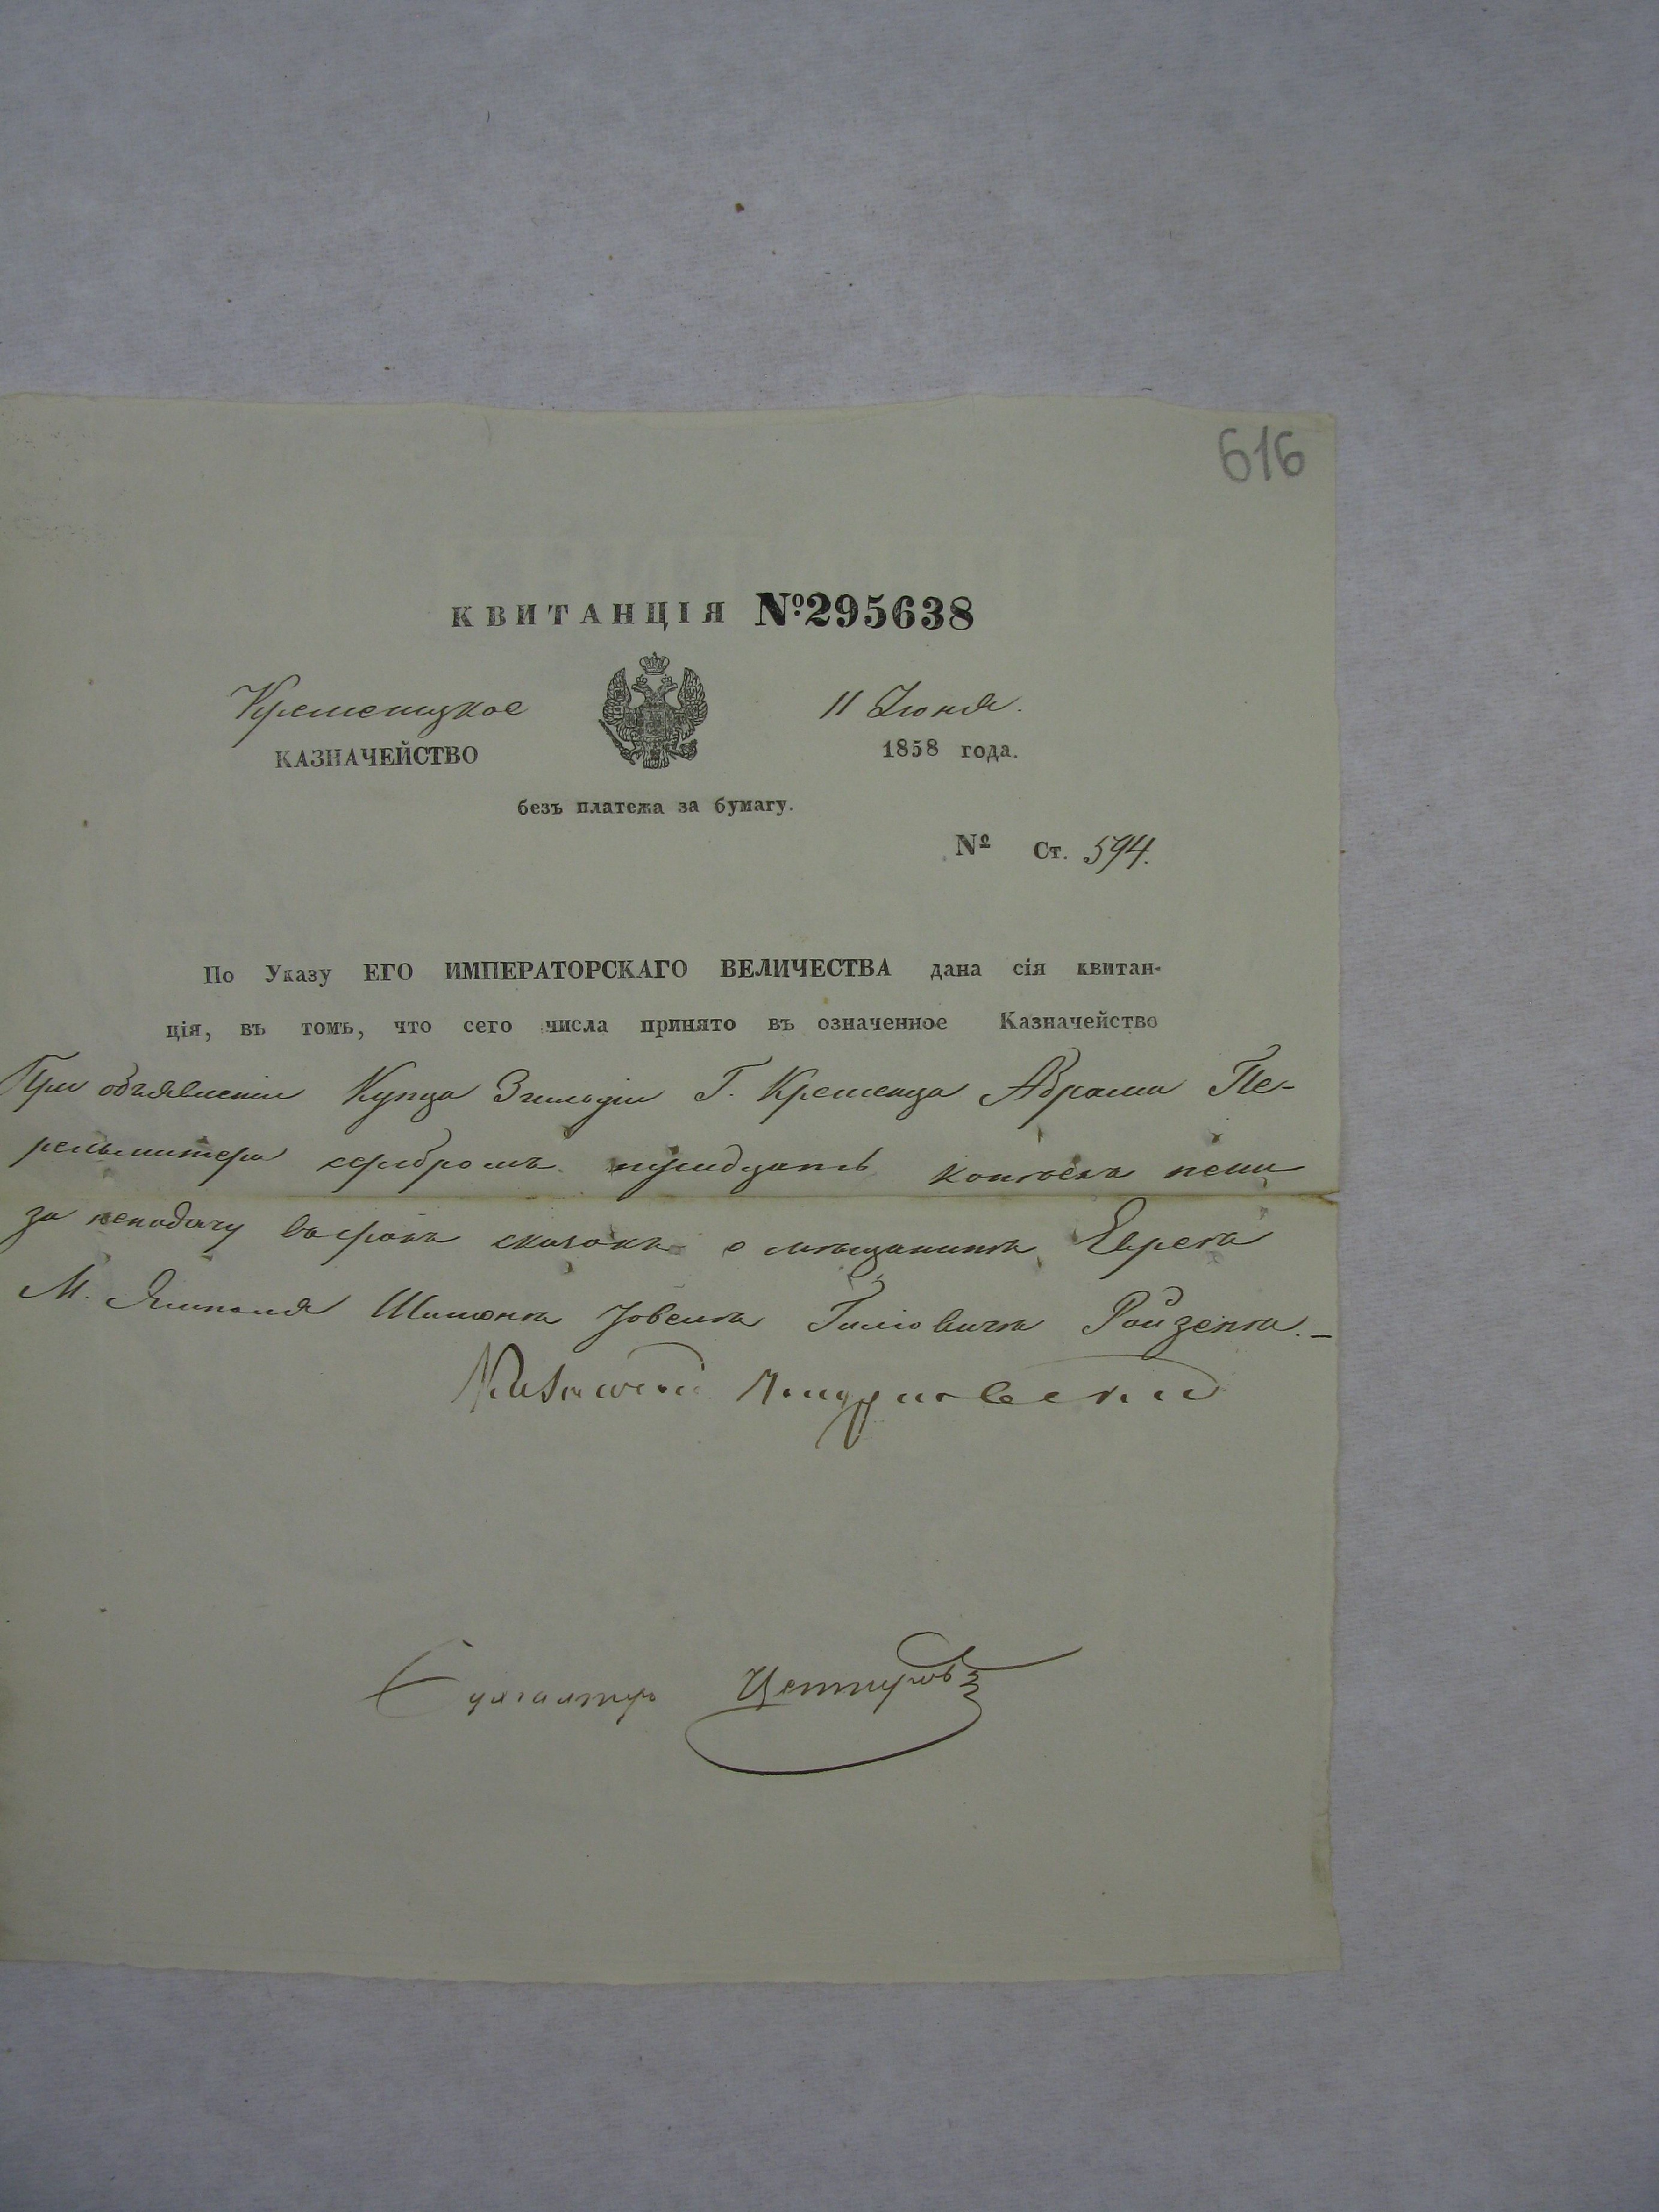 616
КВИТАНЦІЯ №295638
Кременецкое
КАЗНАЧЕЙСТВО
11 Іюня.
1858 года.
безъ платежа за бумагу.
№ Ст. 594.
По Указу ЕГО ИМПЕРАТОРСКАГО ВЕЛИЧЕСТВА дана сія квитан-
ція, въ томъ, что сего числа принято въ означенное Казначейство
При объявленіи Купца 3 гильдіи Г. Кременца Абрама Пе-
рельмитера серебромъ тридцать копѣекъ пени
за неподачу въ срокъ сказокъ о мѣщанинѣ Евреѣ
М. Ямполя Шимонѣ Ройзенѣ.
Бухгалтеръ